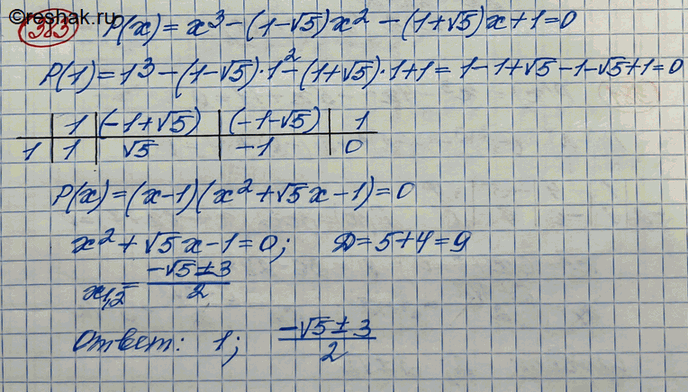 ©reshak.ru
323 P(x) = x³ - (1-√5)x² - (1+√5)x + 1 = 0
P(1) = 1³ - (1-√5)·1² - (1+√5)·1 + 1 = 1 - 1 + √5 - 1 - √5 + 1 = 0
1 | (-1+√5) | (-1-√5) | 1
1 | 1 | √5 | -1 | 0
P(x) = (x-1)(x² + √5x - 1) = 0
x² + √5x - 1 = 0; D = 5 + 4 = 9
x1,2 = (-√5 ± 3)/2
Ответ: 1; (-√5 ± 3)/2